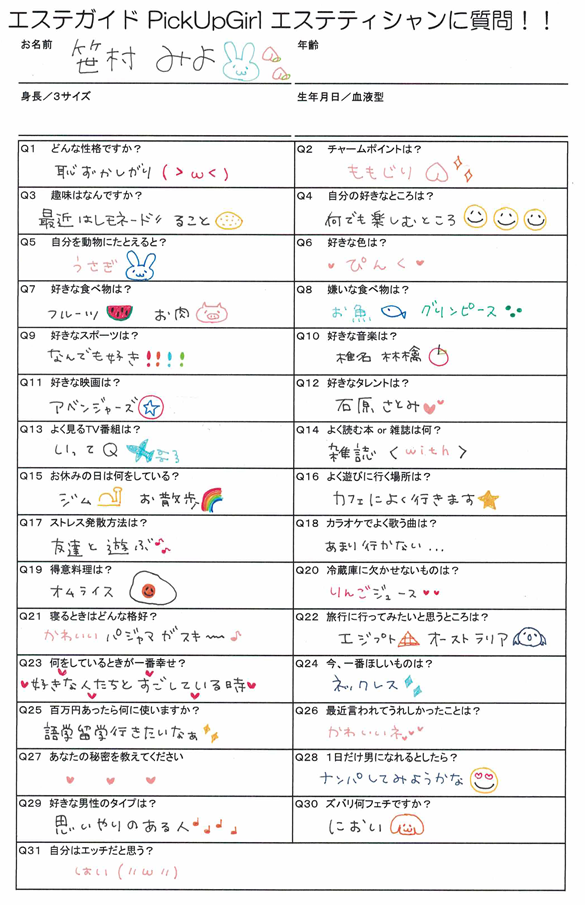 エステガイド PickUpGirl エステティシャンに質問！！
お名前 笹村 みよ
年齢
身長／3サイズ
生年月日／血液型
Q1 どんな性格ですか？
恥ずかしがり (>ω<)
Q2 チャームポイントは？
ももじり
Q3 趣味はなんですか？
最近はレモネード作ること
Q4 自分の好きなところは？
何でも楽しむところ
Q5 自分を動物にたとえると？
うさぎ
Q6 好きな色は？
ぴんく
Q7 好きな食べ物は？
フルーツ お肉
Q8 嫌いな食べ物は？
お魚 グリンピース
Q9 好きなスポーツは？
なんでも好き!!!!
Q10 好きな音楽は？
椎名 林檎
Q11 好きな映画は？
アベンジャーズ
Q12 好きなタレントは？
石原さとみ
Q13 よく見るTV番組は？
いってQ
Q14 よく読む本 or 雑誌は何？
雑誌 〈with〉
Q15 お休みの日は何をしている？
ジム お散歩
Q16 よく遊びに行く場所は？
カフェによく行きます
Q17 ストレス発散方法は？
友達と遊ぶ♪♪
Q18 カラオケでよく歌う曲は？
あまり行かない…
Q19 得意料理は？
オムライス
Q20 冷蔵庫に欠かせないものは？
りんごジュース
Q21 寝るときはどんな格好？
かわいい パジャマ がスキ〜♪
Q22 旅行に行ってみたいと思うところは？
エジプト オーストラリア
Q23 何をしているときが一番幸せ？
好きな人たちと すごしている時
Q24 今、一番ほしいものは？
ネックレス
Q25 百万円あったら何に使いますか？
語学留学行きたいなぁ
Q26 最近言われてうれしかったことは？
かわいいネ
Q27 あなたの秘密を教えてください
Q28 1日だけ男になれるとしたら？
ナンパしてみようかな
Q29 好きな男性のタイプは？
思いやりのある人♪♩♪♩
Q30 ズバリ何フェチですか？
におい
Q31 自分はエッチだと思う？
はい (〃ω〃)